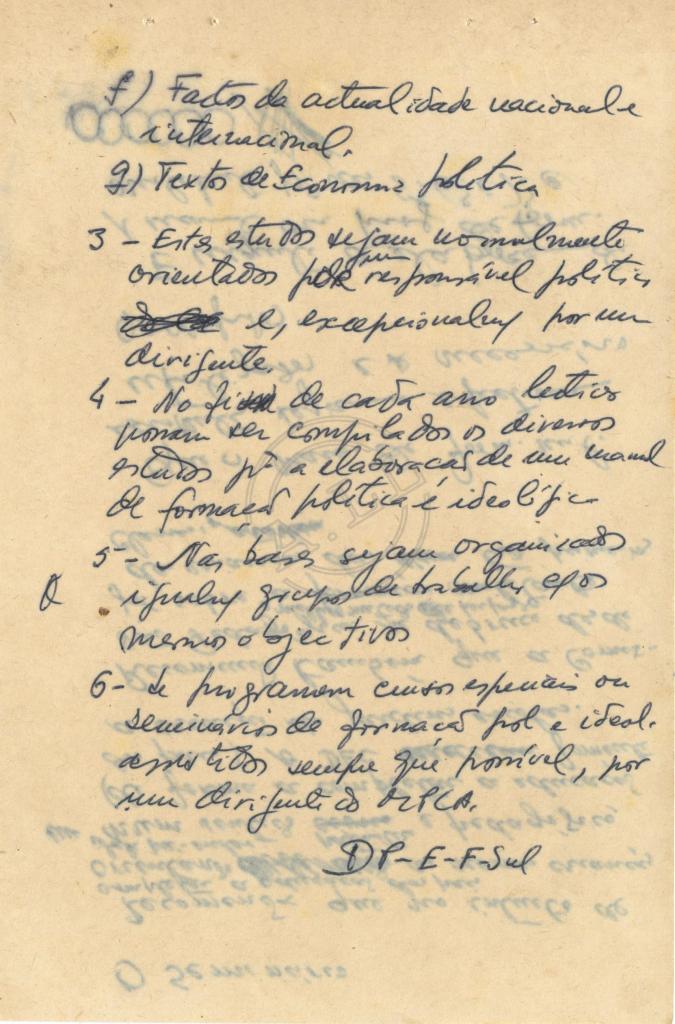 f) Factos da actualidade nacional e
internacional.
g) Textos de Economia politica
3 - Estes estudos sejam normalmente
orientados por um responsável politico
e, excepcionalm/ por um
dirigente.
4 - No fim de cada ano lectivo
possam ser compilados os diversos
estudos pª a elaboração de um manual
de formação política e ideológica
5 - Nas bases sejam organizados
igualm/ grupos de trabalho c/os
mesmos objectivos
6 - Se programem cursos especiais ou
seminários de formação pol e ideol.
assistidos sempre que possível, por
um dirigente do MPLA.
DP-E-F-Sul